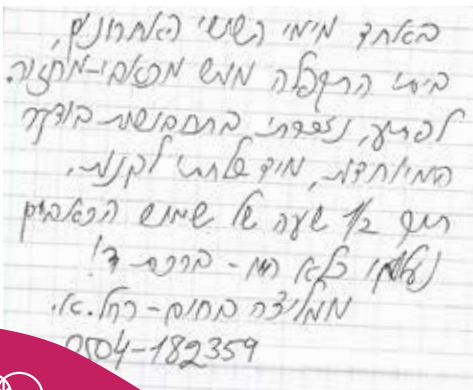 באחד מימי השישי האחרונים,
ביתי התקפלה ממש מכאבי-מחזור.
לפתע, נזכרתי בתחבושות בודקר
המיוחדות, מיד שלחתי לקנות.
תוך 1/2 שעה של שמוש הכאבים
נעלמו כלא היו - ברכת ד'!
ממליצה בחום - רחל.א.
0504-182359